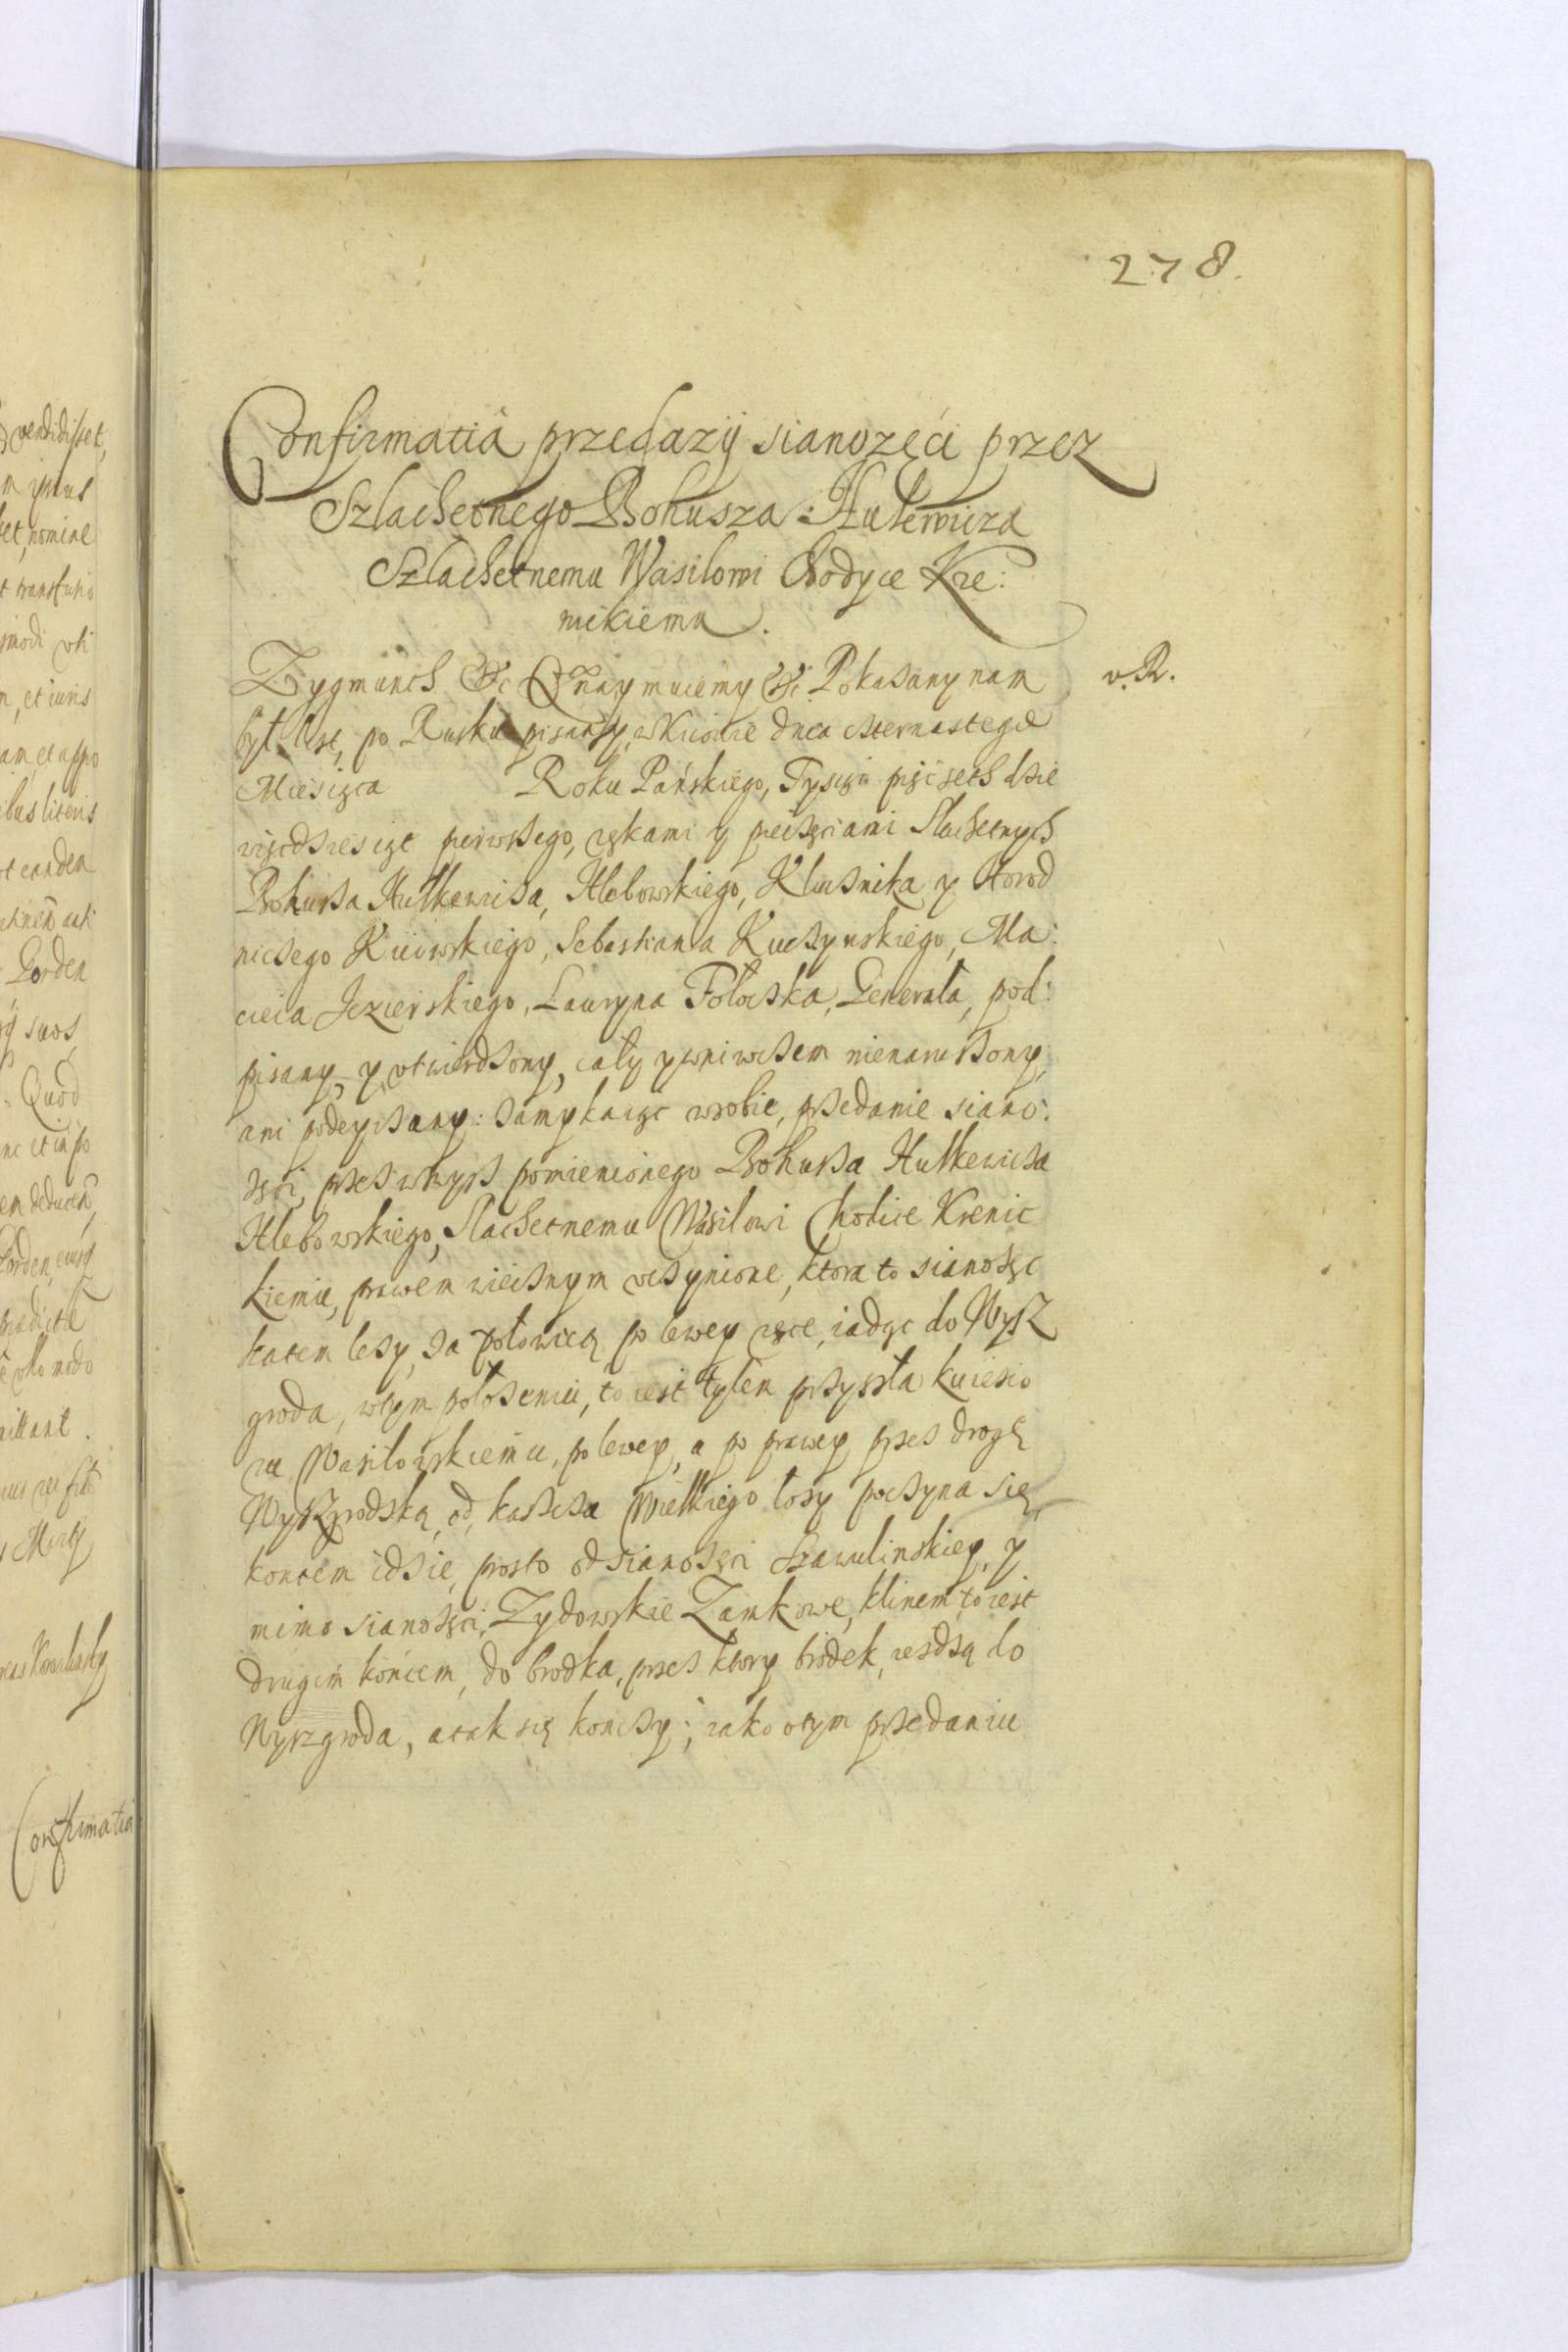 278.
Confirmatia przedazÿ sianozęci przez
Szlachetnego Bohusza Hulewicza
Szlachetnemu Wasilowi Chodyce Kre:
nickiemu.
Zygmunch &c Oznaymuiemy &c Pokazany nam
v. R.
był list, po Rusku pisany, w Kiiowie dnia czternastego
Miesiąca Roku Pańskiego, Tysiąc pięć seth dzie
więcdziesiąt pierwszego, rękami y pieczęciami Slachetnych
Bohusza Hulkewicza, Hlebowskiego, Klucznika y Horod
niczego Kiiowskiego, Sebastiana Kuczynskiego, Ma:
cieia Jezierskiego, Lauryna Połoczka, Generała, pod:
pisany, y utwierdzony, cały y wniwczem nienaruszony,
ani podeyrzany: zamykaiąc wsobie, przedanie siano:
zęci, przez wzwysz pomienionego Bohusza Hulkewicza
Hlebowskiego, Slachetnemu Wasilowi Chodice Krenic
kiemu, prawem wiecznym uczynione, ktora to sianożęc
katem lezy, za połowicą po lewey ręce, iadąc do Wysz
groda, wtym położeniu, to iest tylem przyszła ku iezio
ru Wasilowskiemu, po lewey, a po prawey przez drogę
Wyszgrodską, od kaszcza Wielkiego łozy poczyna się,
koncem idzie, prosto od sianożęci Szawulinskiey, y
mimo sianożęci, Zydowskie Zamkowe, klinem, to iest
drugim koncem, do brodka, przez ktory brodek, iezdzą do
Wyszgroda, a tak się konczy; iako o tym przedaniu
vendidisset,
nomine
et iuris
litteris
Lorden
suos
Quod
Confirmatia